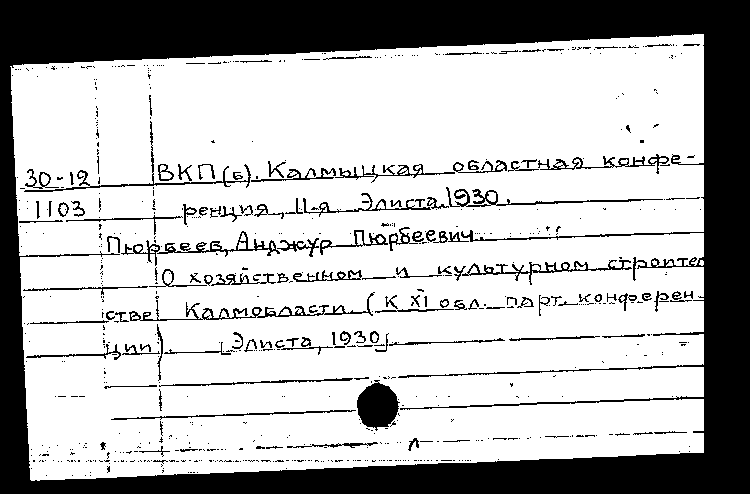 30-12 ВКП(б). Калмыцкая областная конфе-
1103 ренция, 11-я Элиста.1930.
Пюрбеев, Анджур Пюрбеевич.
О хозяйственном и культурном строител
стве Калмобласти (К XI обл. парт. конферен-
ции). [Элиста, 1930].